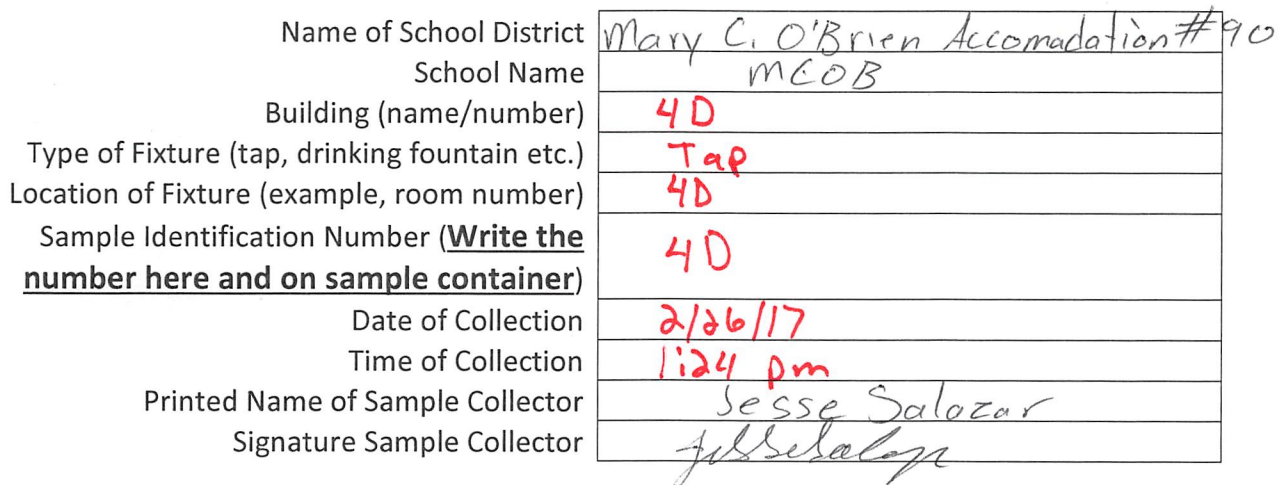 Name of School District Mary C. O'Brien Accomadation #90
School Name MCOB
Building (name/number) 4D
Type of Fixture (tap, drinking fountain etc.) Tap
Location of Fixture (example, room number) 4D
Sample Identification Number (Write the
number here and on sample container) 4D
Date of Collection 2/26/17
Time of Collection 1:24 pm
Printed Name of Sample Collector Jesse Salazar
Signature Sample Collector